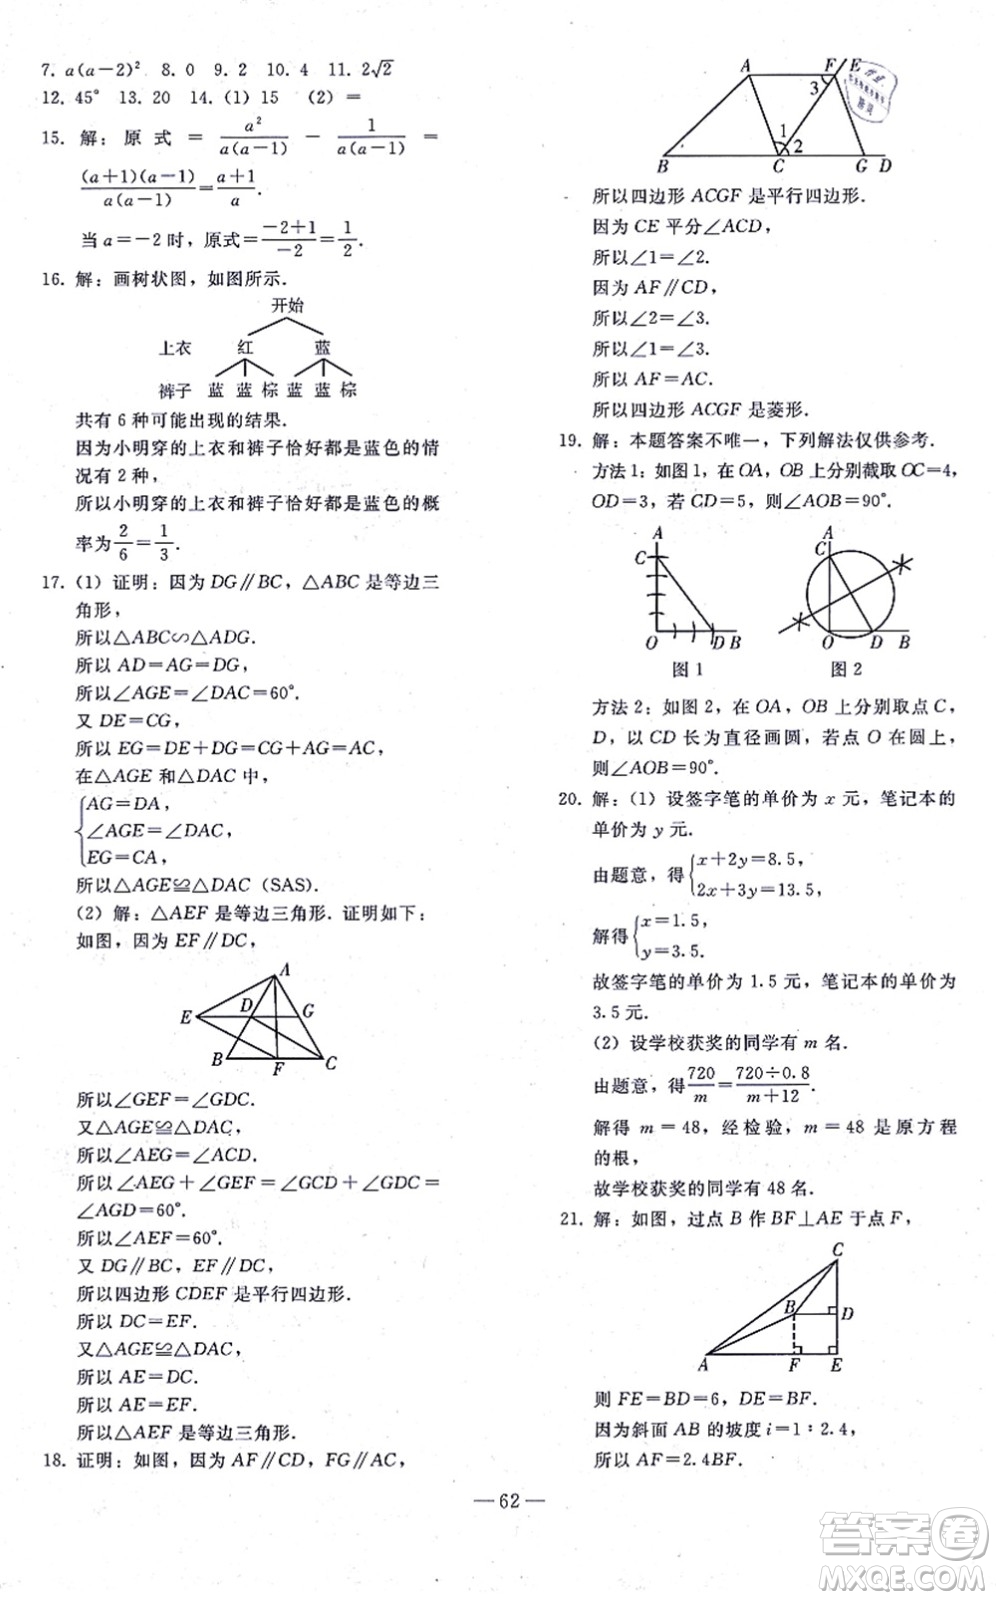 7. a(a－2)² 8. 0 9. 2 10. 4 11. 2√2
12. 45° 13. 20 14. (1) 15 (2) ＝
15. 解：原式＝a²/a(a－1)－1/a(a－1)＝
(a＋1)(a－1)/a(a－1)＝a＋1/a.
当 a＝－2 时，原式＝－2＋1/－2＝1/2.
16. 解：画树状图，如图所示.
开始
上衣 红 蓝
裤子 蓝 蓝 棕 蓝 蓝 棕
共有 6 种可能出现的结果.
因为小明穿的上衣和裤子恰好都是蓝色的情
况有 2 种，
所以小明穿的上衣和裤子恰好都是蓝色的概
率为2/6＝1/3.
17. (1) 证明：因为 DG∥BC，△ABC 是等边三
角形，
所以△ABC∽△ADG.
所以 AD＝AG＝DG，
所以∠AGE＝∠DAC＝60°.
又 DE＝CG，
所以 EG＝DE＋DG＝CG＋AG＝AC，
在△AGE 和△DAC 中，
AG＝DA，
∠AGE＝∠DAC，
EG＝CA，
所以△AGE≌△DAC (SAS).
(2) 解：△AEF 是等边三角形. 证明如下：
如图，因为 EF∥DC，
A
E D G
B F C
所以∠GEF＝∠GDC.
又△AGE≌△DAC，
所以∠AEG＝∠ACD.
所以∠AEG＋∠GEF＝∠GCD＋∠GDC＝
∠AGD＝60°.
所以∠AEF＝60°.
又 DG∥BC，EF∥DC，
所以四边形 CDEF 是平行四边形.
所以 DC＝EF.
又△AGE≌△DAC，
所以 AE＝DC.
所以 AE＝EF.
所以△AEF 是等边三角形.
18. 证明：如图，因为 AF∥CD，FG∥AC，
A F E
3
1
2
B C G D
所以四边形 ACGF 是平行四边形.
因为 CE 平分∠ACD，
所以∠1＝∠2.
因为 AF∥CD，
所以∠2＝∠3.
所以∠1＝∠3.
所以 AF＝AC.
所以四边形 ACGF 是菱形.
19. 解：本题答案不唯一，下列解法仅供参考.
方法 1：如图 1，在 OA，OB 上分别截取 OC＝4，
OD＝3，若 CD＝5，则∠AOB＝90°.
A A
C C
O D B O D B
图 1 图 2
方法 2：如图 2，在 OA，OB 上分别取点 C，
D，以 CD 长为直径画圆，若点 O 在圆上，
则∠AOB＝90°.
20. 解：(1) 设签字笔的单价为 x 元，笔记本的
单价为 y 元.
由题意，得{x＋2y＝8.5，
2x＋3y＝13.5，
解得{x＝1.5，
y＝3.5.
故签字笔的单价为 1.5 元，笔记本的单价为
3.5 元.
(2) 设学校获奖的同学有 m 名.
由题意，得720/m＝720÷0.8/m＋12.
解得 m＝48，经检验，m＝48 是原方程
的根，
故学校获奖的同学有 48 名.
21. 解：如图，过点 B 作 BF⊥AE 于点 F，
C
B D
A F E
则 FE＝BD＝6，DE＝BF.
因为斜面 AB 的坡度 i＝1∶2.4，
所以 AF＝2.4BF.
—62—
答案卷
MXQE.COM